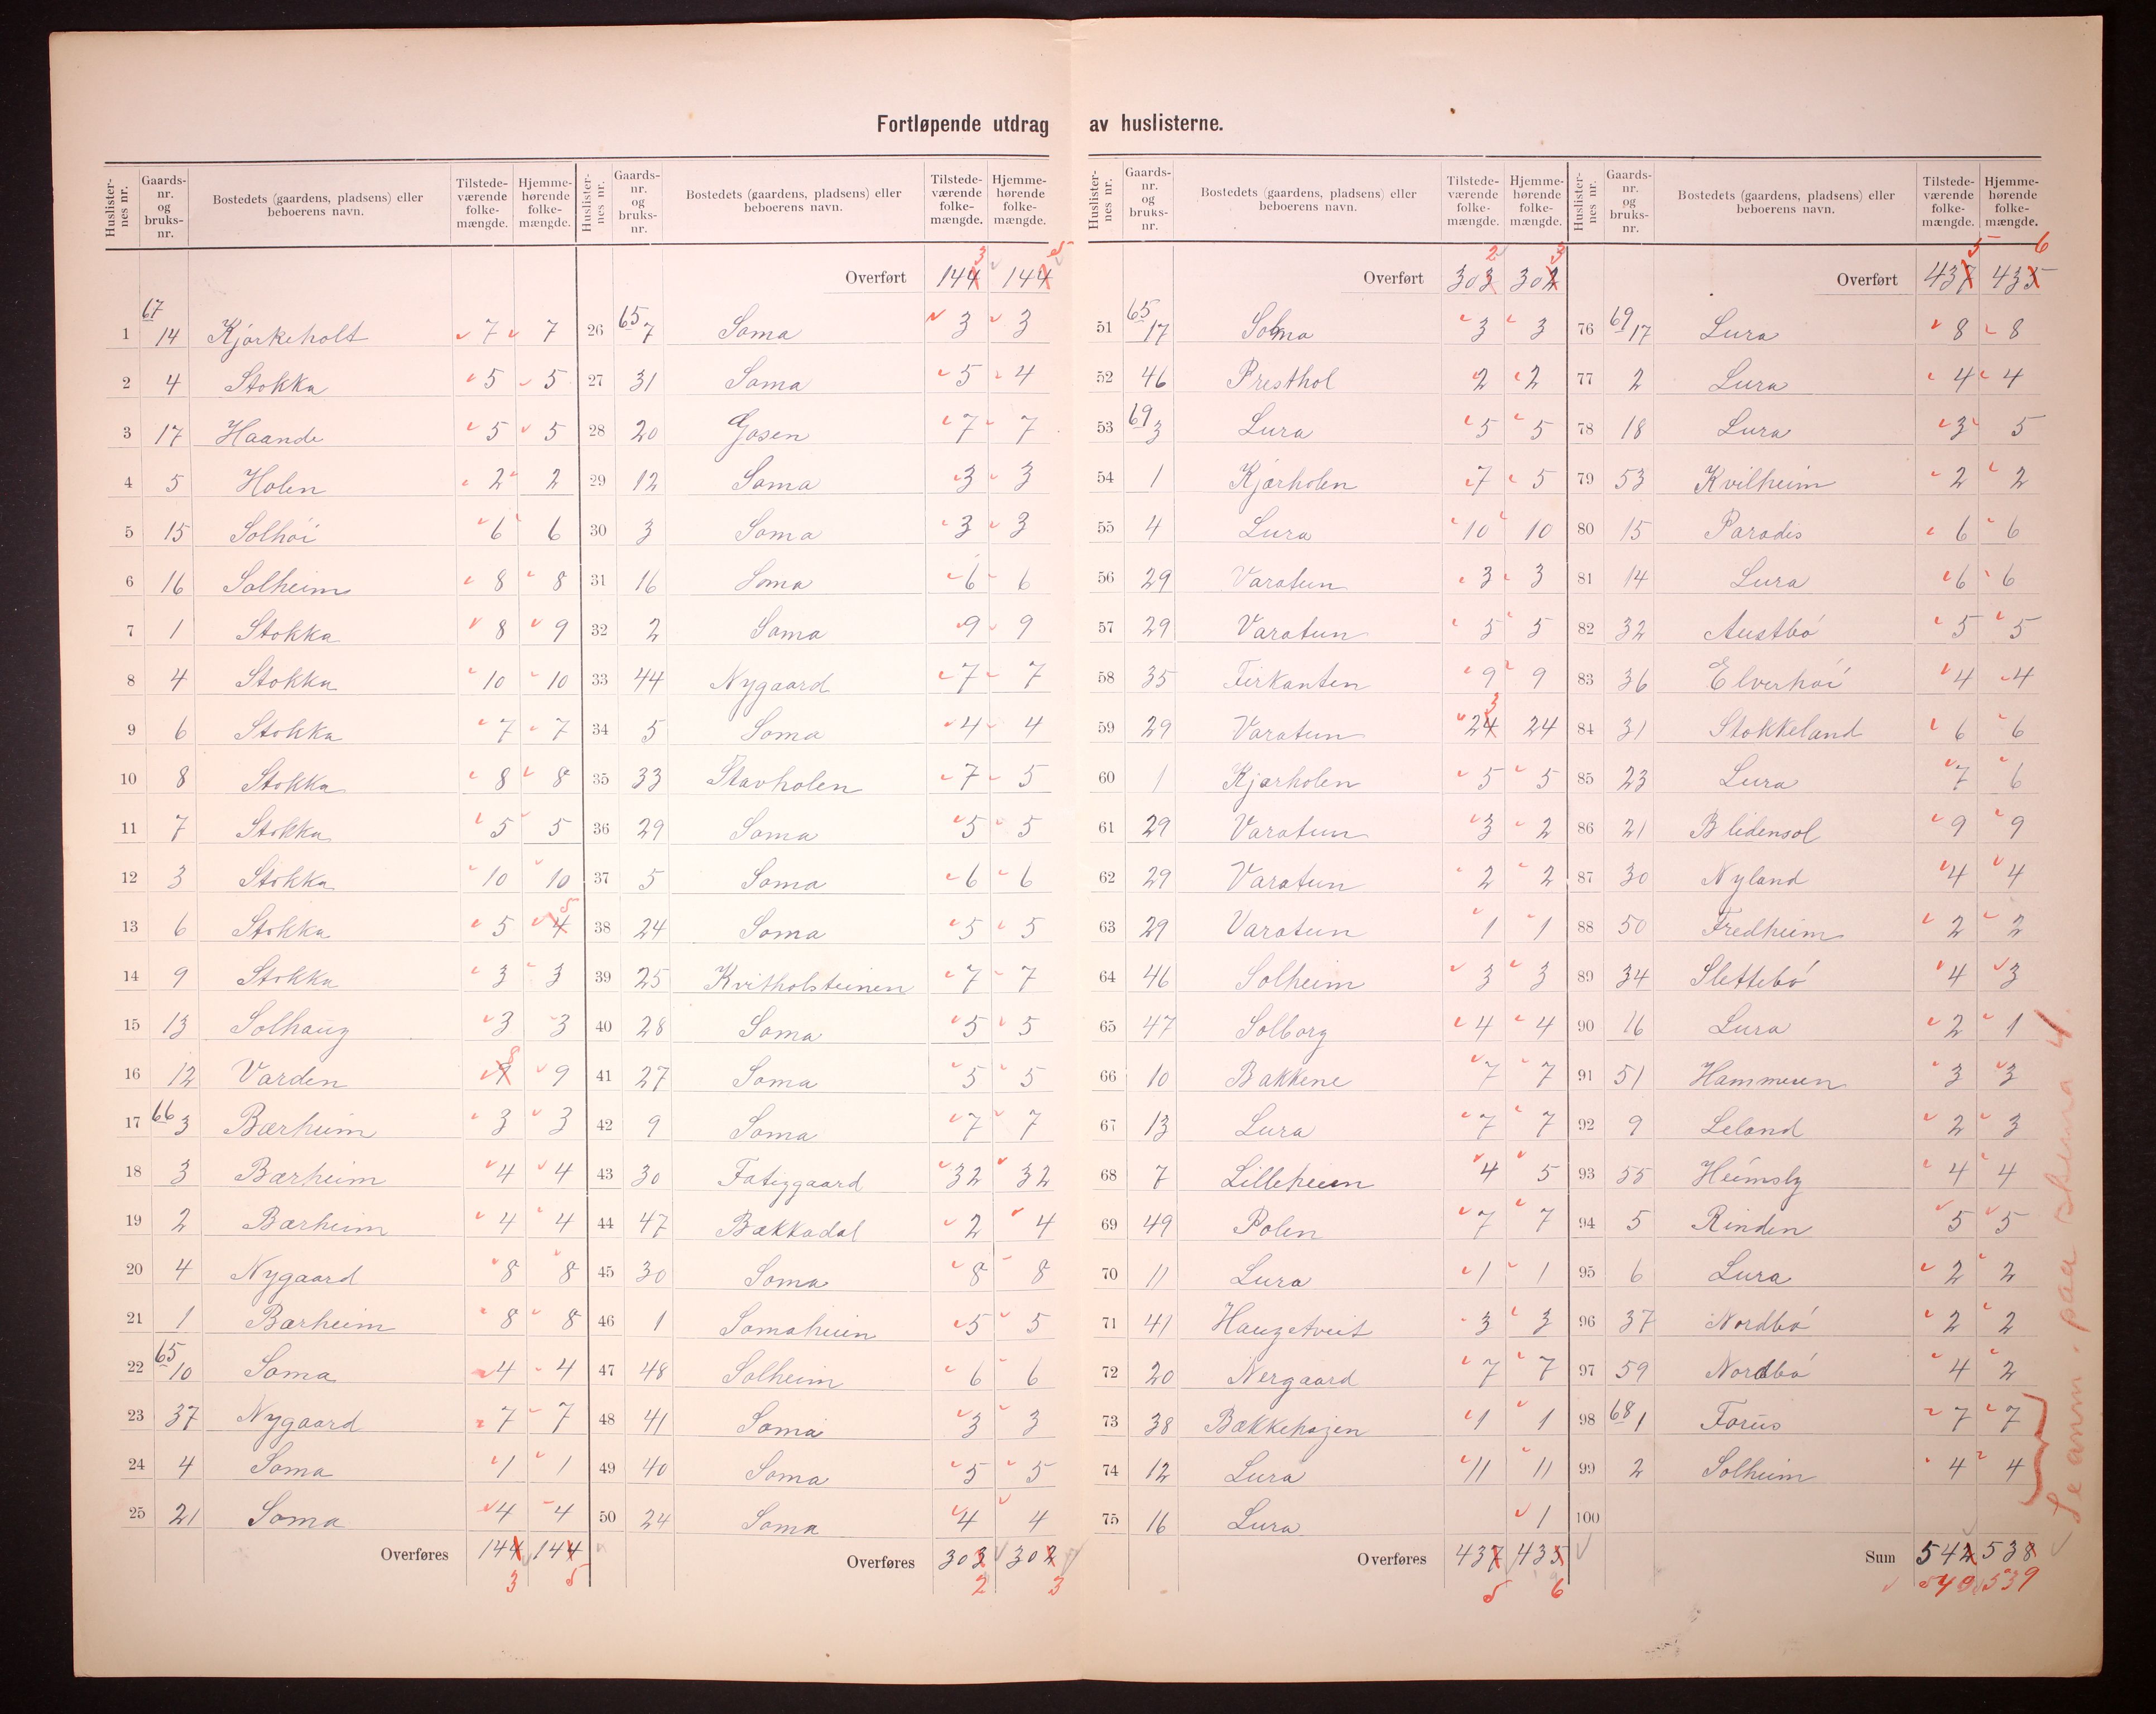 Fortløpende utdrag av huslisterne.
Huslister-nes nr. Gaards-nr. og bruks-nr. Bostedets (gaardens, pladsens) eller beboerens navn. Tilstede-værende folke-mængde. Hjemme-hørende folke-mængde.
1 67 14 Kjørkeholt 7 7
2 4 Stokka 5 5
3 17 Haande 5 5
4 5 Holen 2 2
5 15 Solhøi 6 6
6 16 Solheim 8 8
7 1 Stokka 8 9
8 4 Stokka 10 10
9 6 Stokka 7 7
10 8 Stokka 8 8
11 7 Stokka 5 5
12 3 Stokka 10 10
13 6 Stokka 5 4 5
14 9 Stokka 3 3
15 13 Solhaug 3 3
16 12 Varden 9 8 9
17 66 3 Bærheim 3 3
18 3 Bærheim 4 4
19 2 Bærheim 4 4
20 4 Nygaard 8 8
21 1 Bærheim 8 8
22 65 10 Soma 4 4
23 37 Nygaard 7 7
24 4 Soma 1 1
25 21 Soma 4 4
Overføres 144 144
3 5
Huslister-nes nr. Gaards-nr. og bruks-nr. Bostedets (gaardens, pladsens) eller beboerens navn. Tilstede-værende folke-mængde. Hjemme-hørende folke-mængde.
3 5
Overført 144 144
26 65 7 Soma 3 3
27 31 Soma 5 4
28 20 Gosen 7 7
29 12 Soma 3 3
30 3 Soma 3 3
31 16 Soma 6 6
32 2 Soma 9 9
33 44 Nygaard 7 7
34 5 Soma 4 4
35 33 Stavholen 7 5
36 29 Soma 5 5
37 5 Soma 6 6
38 24 Soma 5 5
39 25 Kvitholsteinen 7 7
40 28 Soma 5 5
41 27 Soma 5 5
42 9 Soma 7 7
43 30 Fatiggaard 32 32
44 47 Bækkadal 2 4
45 30 Soma 8 8
46 1 Somaheim 5 5
47 48 Solheim 6 6
48 41 Soma 3 3
49 40 Soma 5 5
50 24 Soma 4 4
Overføres 303 302
2 3
Huslister-nes nr. Gaards-nr. og bruks-nr. Bostedets (gaardens, pladsens) eller beboerens navn. Tilstede-værende folke-mængde. Hjemme-hørende folke-mængde.
2 3
Overført 303 302
51 65 17 Soma 3 3
52 46 Presthol 2 2
53 69 3 Lura 5 5
54 1 Kjærholen 7 5
55 4 Lura 10 10
56 29 Varatun 3 3
57 29 Varatun 5 5
58 35 Firkanten 9 9
59 29 Varatun 24 3 24
60 1 Kjærholen 5 5
61 29 Varatun 3 2
62 29 Varatun 2 2
63 29 Varatun 1 1
64 46 Solheim 3 3
65 47 Solborg 4 4
66 10 Bakkene 7 7
67 13 Lura 7 7
68 7 Lilleheim 4 5
69 49 Polen 7 7
70 11 Lura 1 1
71 41 Haugetveit 3 3
72 20 Nergaard 7 7
73 38 Bækkehagen 1 1
74 12 Lura 11 11
75 16 Lura 1
Overføres 437 435
5 6
Huslister-nes nr. Gaards-nr. og bruks-nr. Bostedets (gaardens, pladsens) eller beboerens navn. Tilstede-værende folke-mængde. Hjemme-hørende folke-mængde.
5 6
Overført 437 435
76 69 17 Lura 8 8
77 2 Lura 4 4
78 18 Lura 3 5
79 53 Kvilheim 2 2
80 15 Paradis 6 6
81 14 Lura 6 6
82 32 Austbø 5 5
83 36 Elverhøi 4 4
84 31 Stokkeland 6 6
85 23 Lura 7 6
86 21 Blidensol 9 9
87 30 Nyland 4 4
88 50 Fredheim 2 2
89 34 Slettebø 4 3
90 16 Lura 2 1
91 51 Hammeren 3 3
92 9 Leland 2 3
93 55 Heimsly 4 4
94 5 Rinden 5 5
95 6 Lura 2 2
96 37 Nordbø 2 2
97 59 Nordbø 4 2
98 68 1 Forus 7 7
99 2 Solheim 4 4
100
Sum 542 538
540 539
Se anm. paa skema 4.